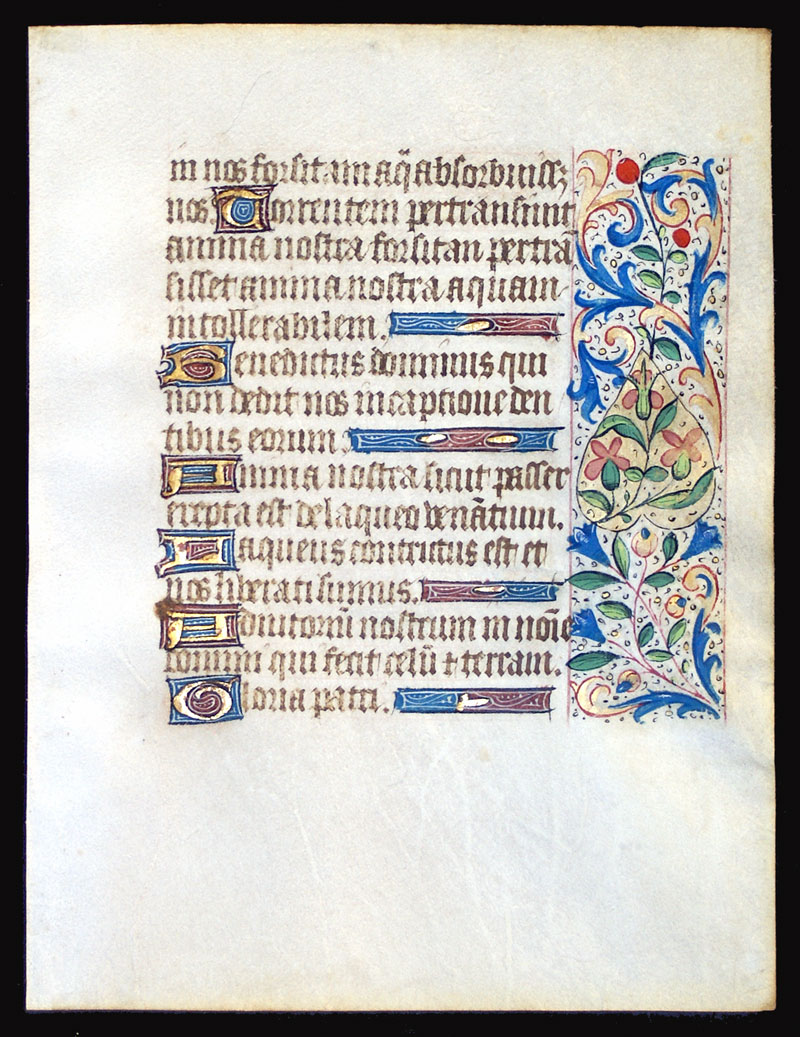 in nos forsitam aq̃ absorbuissꝫ
nos. Torrentem pertransiuit
anima nostra forsitan pertrã
sisset anima nostra aquam
intollerabilem.
Benedictus dominus qui
non dedit nos in captione den
tibus eorum.
Anima nostra sicut passer
erepta est de laqueo venãtium.
Laqueus contritus est et
nos liberati sumus.
Adiutoriũ nostrum in noĩe
domini qui fecit celũ ⁊ terram.
Gloria patri.